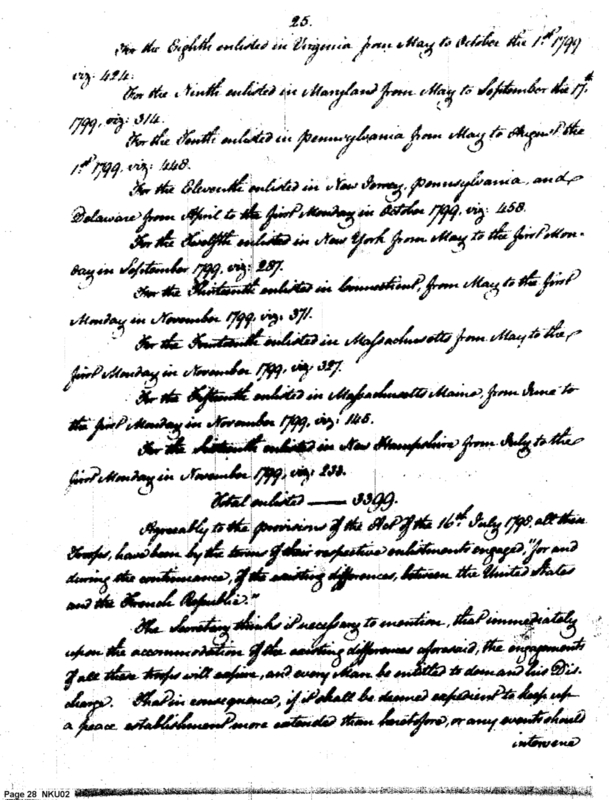 25.
For the Eighth enlisted in Virginia from May to October the 1st 1799
viz: 424.
For the Ninth enlisted in Maryland from May to September the 17th
1799, viz: 314.
For the Tenth enlisted in Pennsylvania from May to August the
1st 1799, viz: 448.
For the Eleventh enlisted in New Jersey, Pennsylvania, and
Delaware from April to the first Monday in October 1799, viz: 458.
For the Twelfth enlisted in New York from May to the first Mon-
day in September 1799, viz: 287.
For the Thirteenth enlisted in Connecticut, from May to the first
Monday in November 1799, viz: 371.
For the Fourteenth enlisted in Massachusetts from May to the
first Monday in November 1799, viz: 327.
For the Fifteenth enlisted in Massachusetts Maine, from June to
the first Monday in November 1799, viz: 145.
For the Sixteenth enlisted in New Hampshire from July to the
first Monday in November 1799, viz: 233.
Total enlisted —— 3399.
Agreeably to the provisions of the Act of the 16th July 1798, all these
Troops, have been by the terms of their respective enlistments engaged, "for and
during the continuance, of the existing differences, between the United States
and the French Republic."
The Secretary thinks it necessary to mention, that immediately
upon the accommodation of the existing differences aforesaid, the engagements
of all these troops will expire, and every Man be entitled to demand his Dis-
charge. That in consequence, if it shall be deemed expedient to keep up
a peace establishment more extended than heretofore, or any events should
intervene
Page 28 NKU02